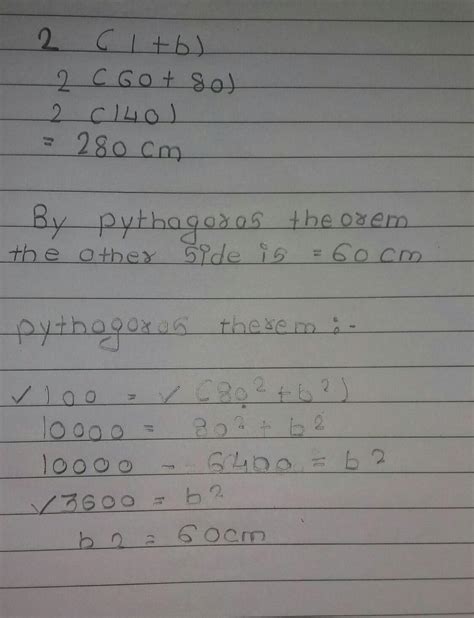 2 (l+b)
2 (60+80)
2 (140)
= 280 cm
By pythagoras theorem
the other side is = 60 cm
pythagoras therem :-
√100 = √(80²+b²)
10000 = 80²+b²
10000 - 6400 = b²
√3600 = b²
b2 = 60cm